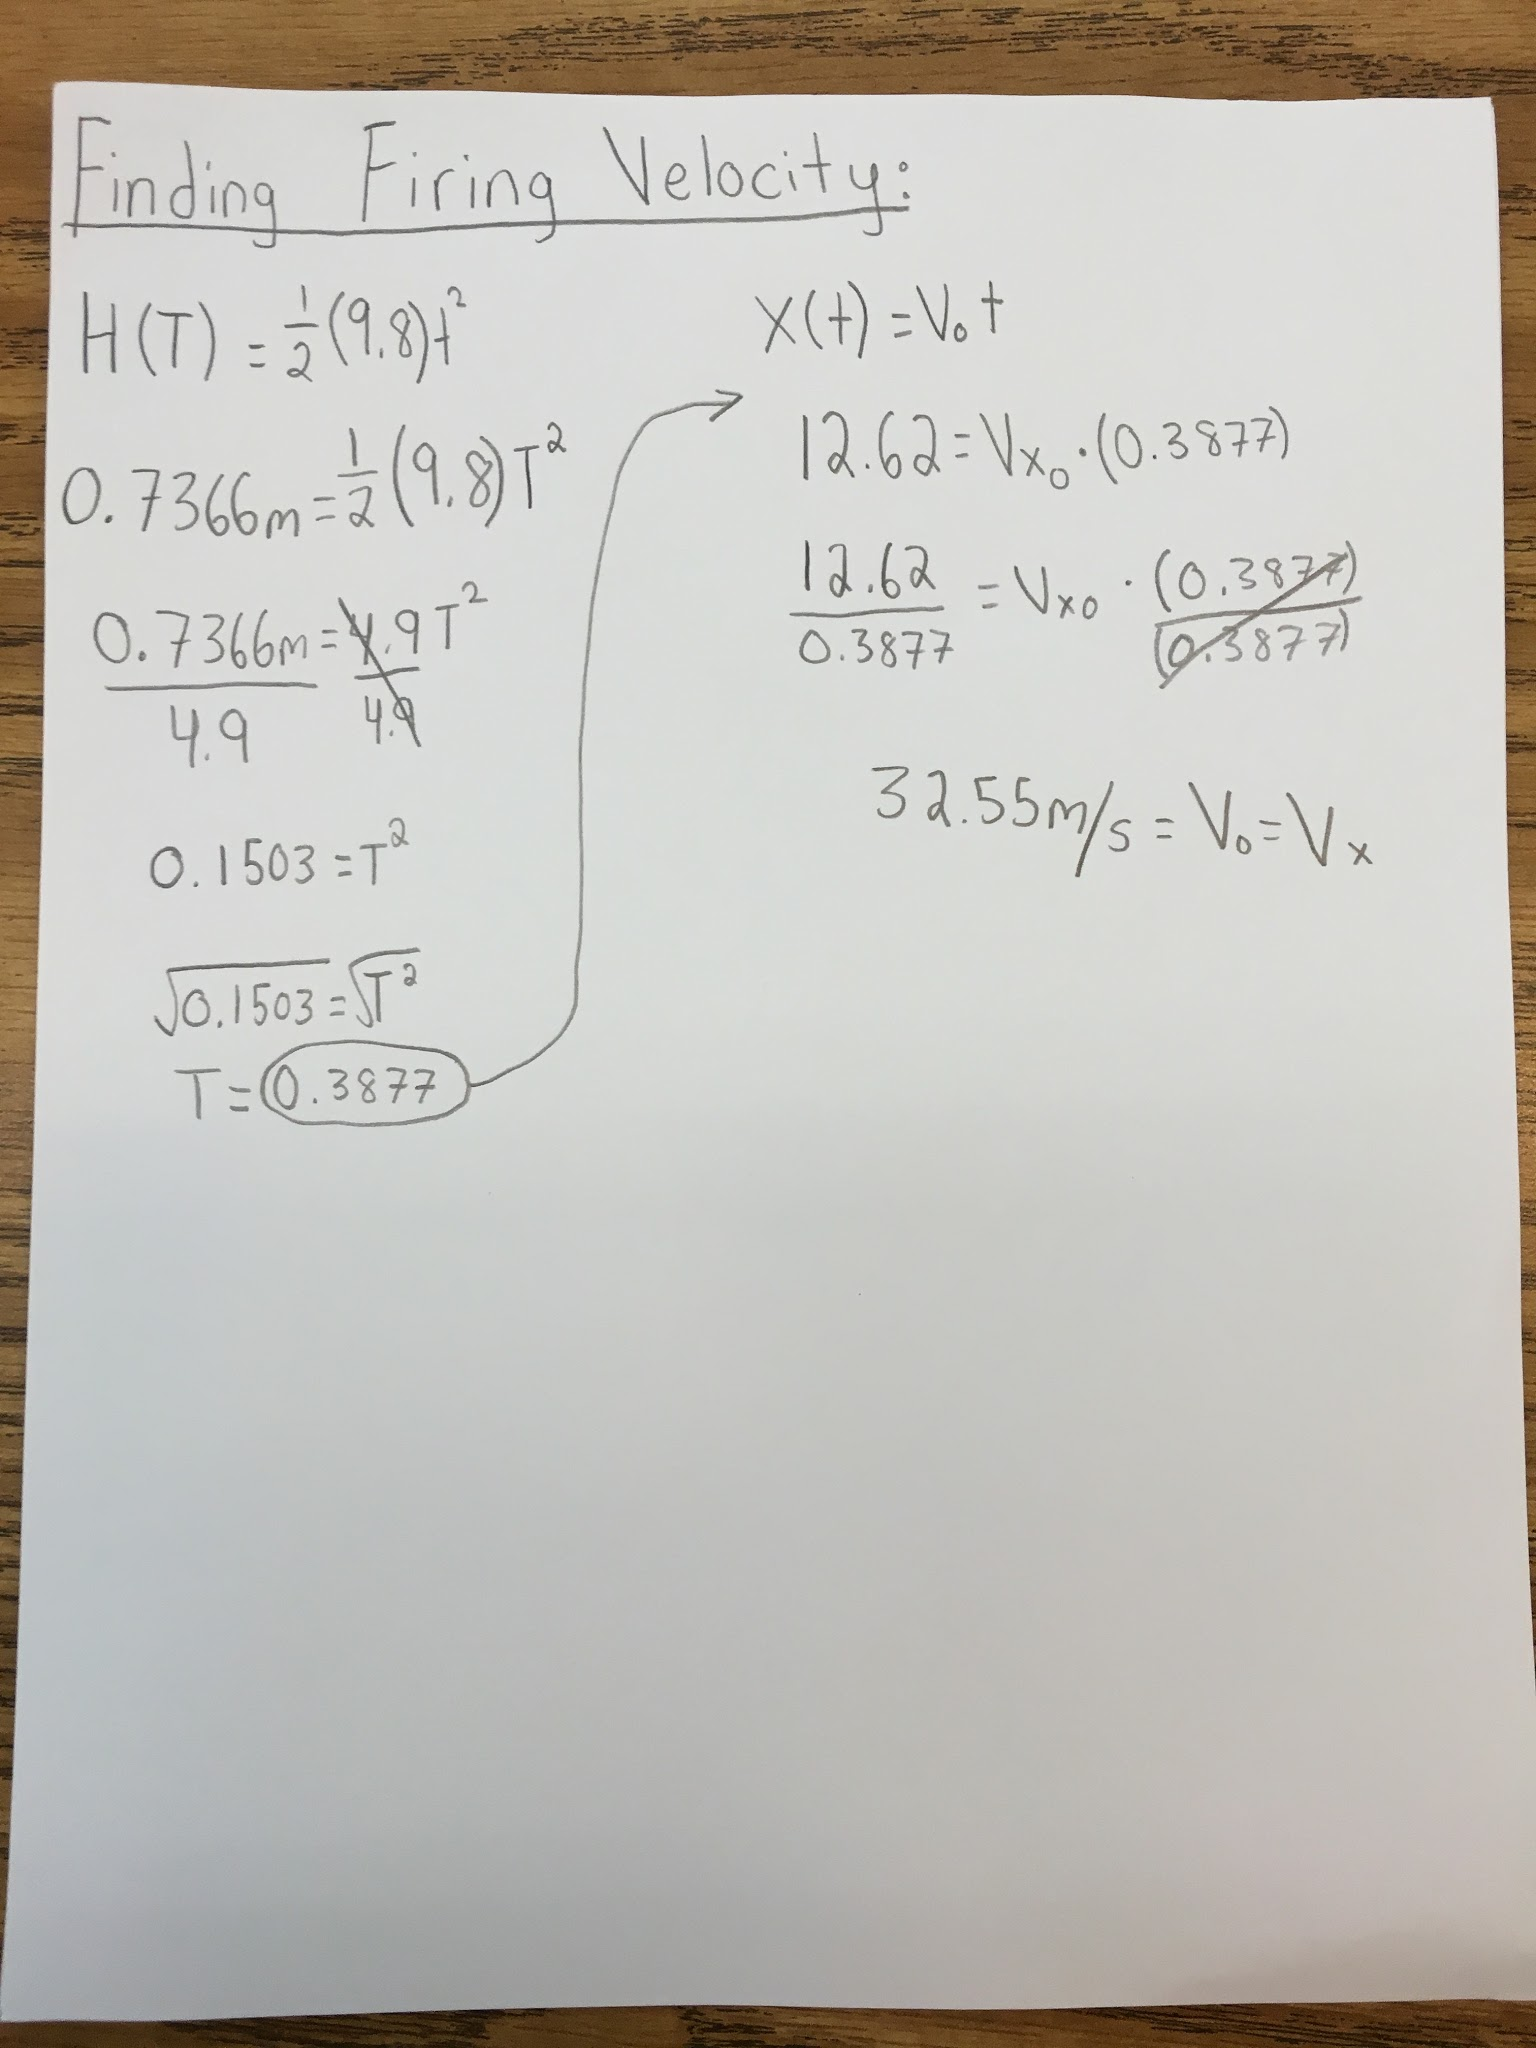 Finding Firing Velocity:
H(T) = 1/2 (9.8)t²
0.7366m = 1/2 (9.8)T²
0.7366m/4.9 = 4.9T²/4.9
0.1503 = T²
√0.1503 = √T²
T = 0.3877
X(t) = V₀t
12.62 = Vx₀ · (0.3877)
12.62/0.3877 = Vx₀ · (0.3877)/(0.3877)
32.55m/s = V₀ = Vx